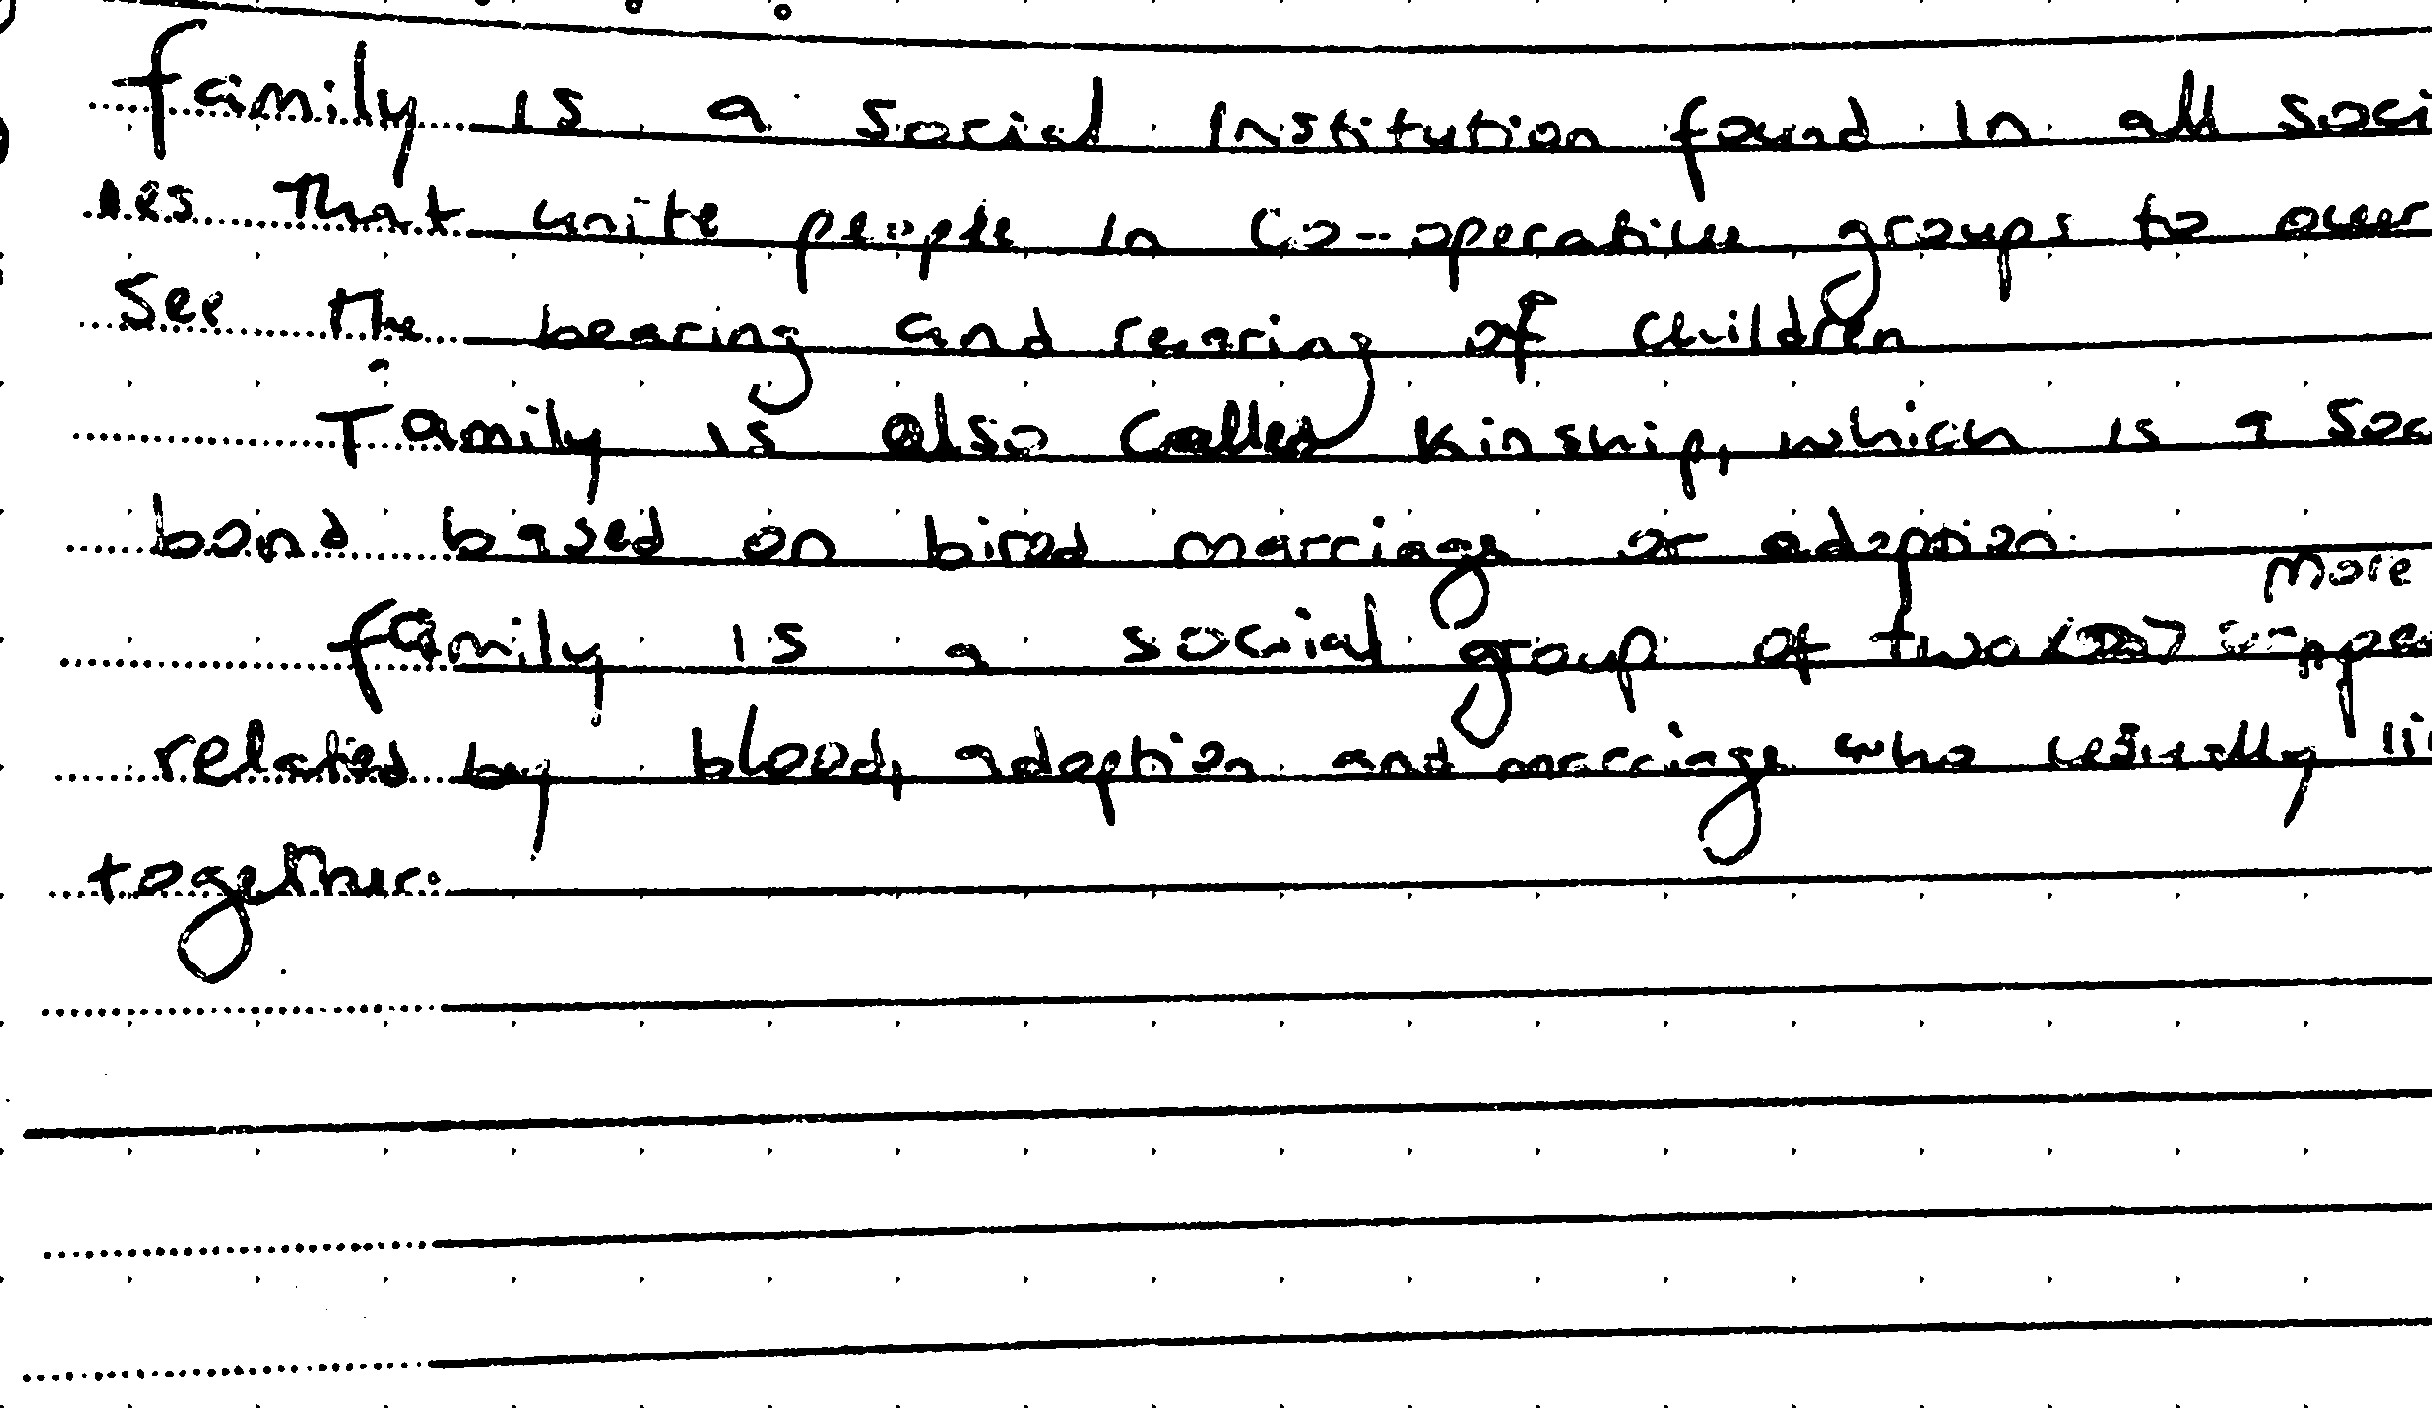 family is a social Institution found in all soci
ies that unite people in Co-operative groups to over
see the bearing and rearing of children
Family is also called kinship, which is a soc
bond based on blood marriage or adoption.
more
family is a social group of two
related by blood, adoption and marriage who usually li
together.